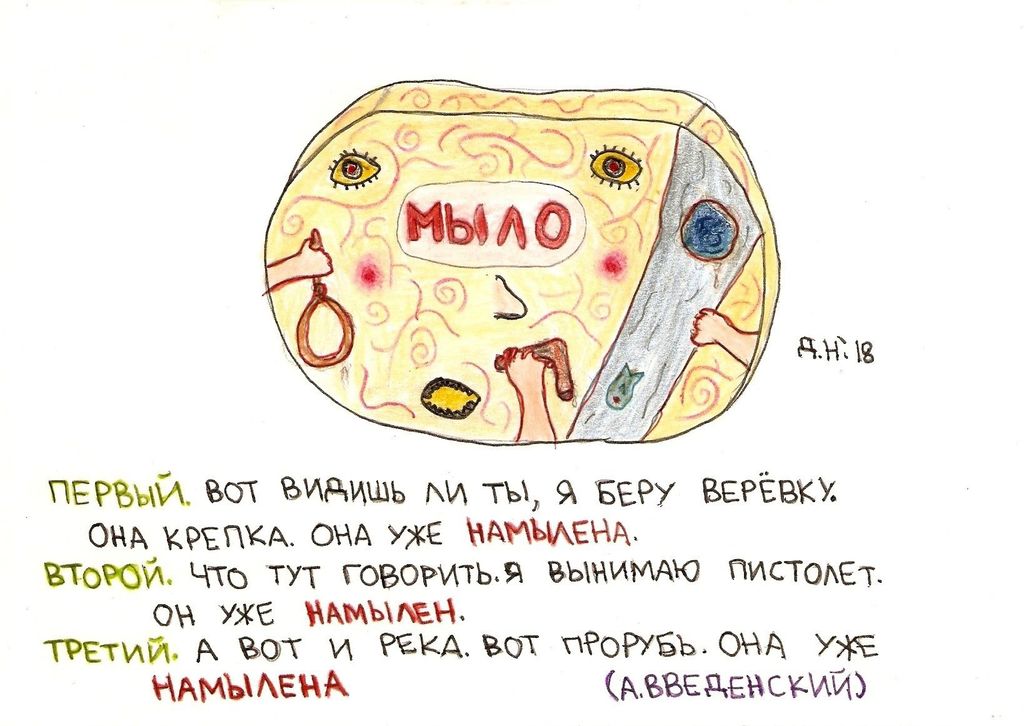 МЫЛО
Д.Н.'18
ПЕРВЫЙ. ВОТ ВИДИШЬ ЛИ ТЫ, Я БЕРУ ВЕРЁВКУ.
ОНА КРЕПКА. ОНА УЖЕ НАМЫЛЕНА.
ВТОРОЙ. ЧТО ТУТ ГОВОРИТЬ. Я ВЫНИМАЮ ПИСТОЛЕТ.
ОН УЖЕ НАМЫЛЕН.
ТРЕТИЙ. А ВОТ И РЕКА. ВОТ ПРОРУБЬ. ОНА УЖЕ
НАМЫЛЕНА (А.ВВЕДЕНСКИЙ)